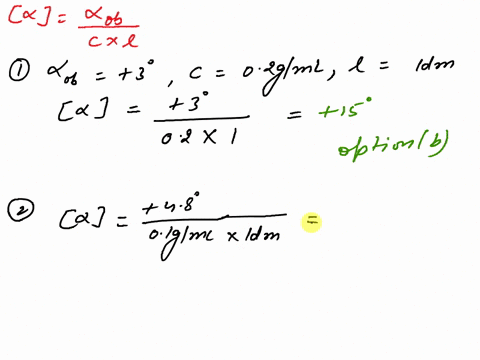 [α] = αob / c × l
① αob = +3°, c = 0.2g/mL, l = 1dm
[α] = +3° / 0.2 × 1 = +15°
option(b)
② [α] = +4.8° / 0.1g/mL × 1dm =